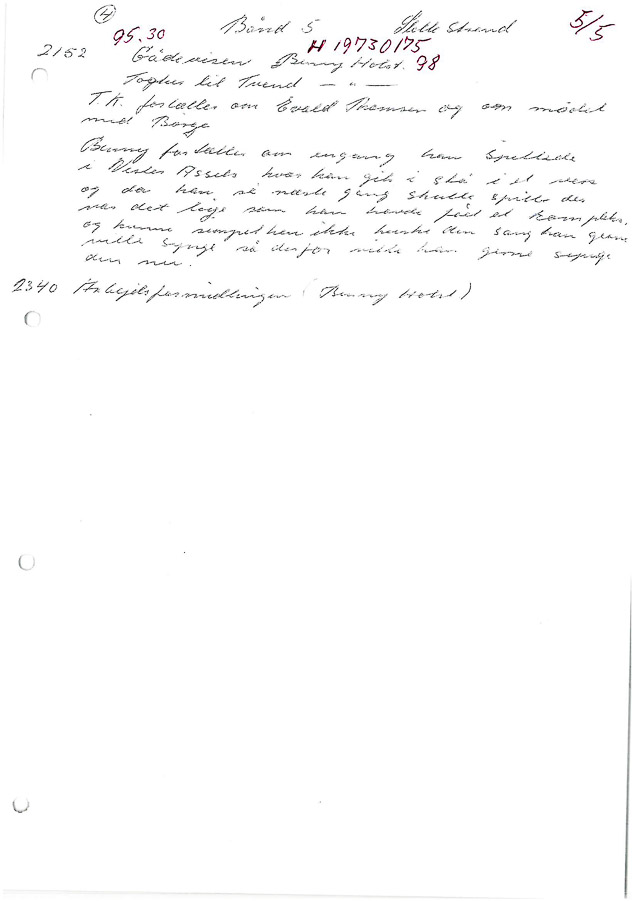 4
95.30 Bånd 5 Slette Strand 5/5
H 19730175
2152 Gådevisen Benny Holst. 98
til Tvend — " —
T.K. fortæller om Evald Thomsen og om mødet
med Børge
Benny fortæller om engang han spillede
i Vester Assels hvor han gik i stå i et vers
og da han så næste gang skulle spille der
var det lige som han havde fået et kompleks.
og kunne simpelthen ikke huske den sang han gerne
ville synge så derfor ville han gerne synge
den nu.
2340 Arbejdsformidlingen (Benny Holst)